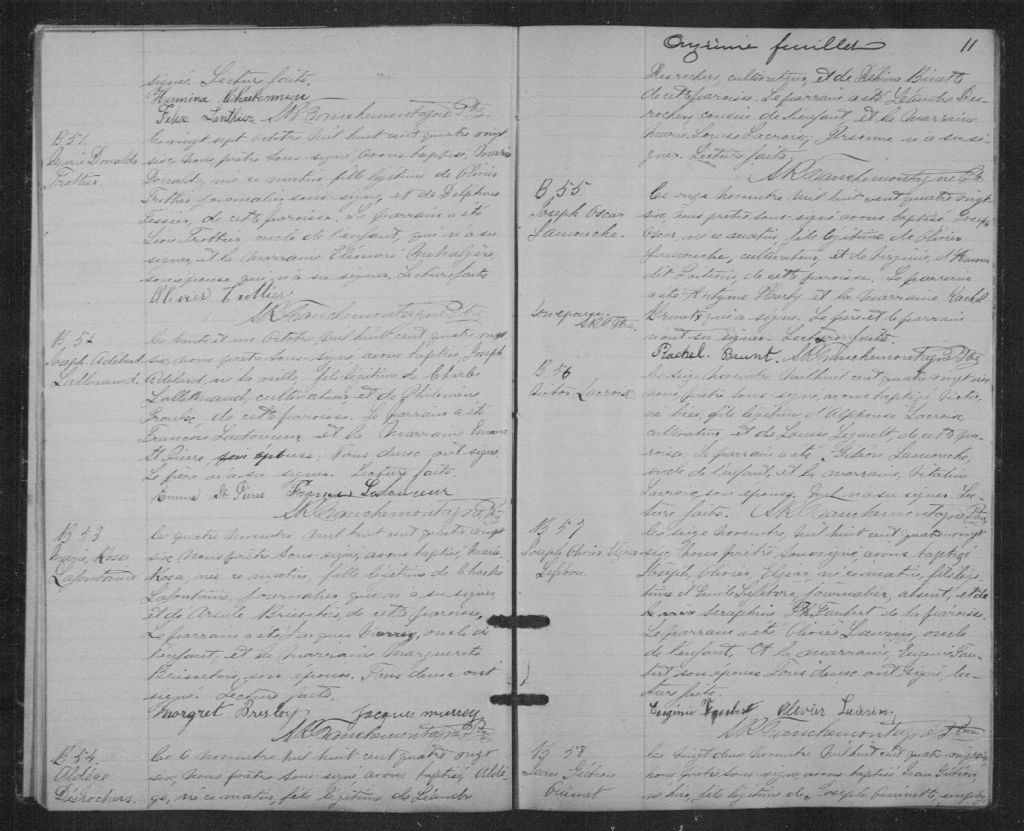 signé. Lecture faite.
Hermina Charbonneau
Felix Lentrier A R Tranchemontagne Ptre
B 51.
Marie Donalda
Trottier.
Ce vingt sept octobre mil huit cent quatre vingt
six, nous prêtre sous-signé, avons baptisé, Marie
Donalda, née ce matin, fille légitime de Olivier
Trottier, journalier soussigné, et de Delphine
Tessier, de cette paroisse. Le parrain a été
Léon Trottier oncle de l'enfant, qui n'a su
signer, et la marraine Eléonore
son épouse qui n'a su signer. Lecture faite
Olivier Trottier
A R Tranchemontagne Ptre
B 52
Joseph Adélard
Lallemand.
Ce trente et un octobre mil huit cent quatre vingt
six, nous prêtre sous-signé avons baptisé, Joseph
Adélard, né la veille, fils légitime de Charles
Lallemand, cultivateur, et de Philomène
Proulx, de cette paroisse. Le parrain a été
François Ladouceur, et la marraine Emma
St Pierre, son épouse; Tous deux ont signé.
Le père n'a su signer. Lecture faite.
Emma St Pierre Francis Ladouceur
A R Tranchemontagne Ptre
B 53
Marie, Rosa
Lafontaine
Ce quatre novembre mil huit cent quatre vingt
six nous prêtre sous-signé, avons baptisé, Marie
Rosa, née ce matin, fille légitime de Charles
Lafontaine, journalier qui n'a su signer,
et de Ursule Brisebois, de cette paroisse,
Le parrain a été Jacques Murrey, oncle de
l'enfant, et la marraine Marguerite
Brisebois, son épouse. Tous deux ont
signé. Lecture faite.
Margret Bresboy Jacques murrey
A R Tranchemontagne Ptre
B 54
Aldège
Desrochers.
Ce novembre mil huit cent quatre vingt
six, nous prêtre sous-signé, avons baptisé, Aldè-
ge, né ce matin, fils légitime de Léandre
Onzième feuillet 11
Desrochers, cultivateur, et de Delvina
de cette paroisse. Le parrain a été Léandre Des-
rochers, cousin de l'enfant et la marraine
Marie Louise Lacroix; Personne n'a su si-
gner. Lecture faite.
A R Tranchemontagne Ptre
B 55
Joseph Oscar
Lamouche.
Ce onze novembre mil huit cent quatre vingt
six, nous prêtre sous-signé avons baptisé Joseph
Oscar, né ce matin, fils légitime de Olivier
Lamouche, cultivateur, et de Virginie,
dit de cette paroisse. Le parrain
a été Antoine Hardy et la marraine Rachel
Brunet qui a signé. Le père et le parrain
n'ont su signer. Lecture faite.
A R T Ptre.
Rachel. Brunt. A R Tranchemontagne Ptre
B 56
Victor Lacroix
Ce seize novembre mil huit cent quatre vingt six
nous prêtre sous-signé, avons baptisé Victor,
né hier, fils légitime d'Alphonse Lacroix,
cultivateur, et de Louise Legault, de cette pa-
roisse. Le parrain a été Gédéon Lamouche,
oncle de l'enfant, et la marraine, Vitaline
Lacroix, son épouse. Nul n'a su signer. Lec-
ture faite. A R Tranchemontagne Ptre
B 57
Joseph Olivier Elzear
Lefebvre.
Ce seize novembre, mil huit cent quatre vingt
six, nous prêtre, soussigné, avons baptisé
Joseph, Olivier, Elzear, né ce matin, fils légi-
time d'Emile Lefebvre, journalier, absent, et de
Seraphine Faubert de la paroisse.
Le parrain a été Olivier Laurin, oncle
de l'enfant. Et la marraine, Eugénie Fau-
bert son épouse. Tous deux ont signé, lec-
ture faite.
Eugénie Faubert Olivier Laurin
A R Tranchemontagne Ptre
B 58
Jean Gédéon
Ouimet
Ce vingt deux novembre mil huit cent quatre vingt six
nous prêtre sous-signé, avons baptisé Jean Gédéon,
né hier, fils légitime de Joseph Ouimet,